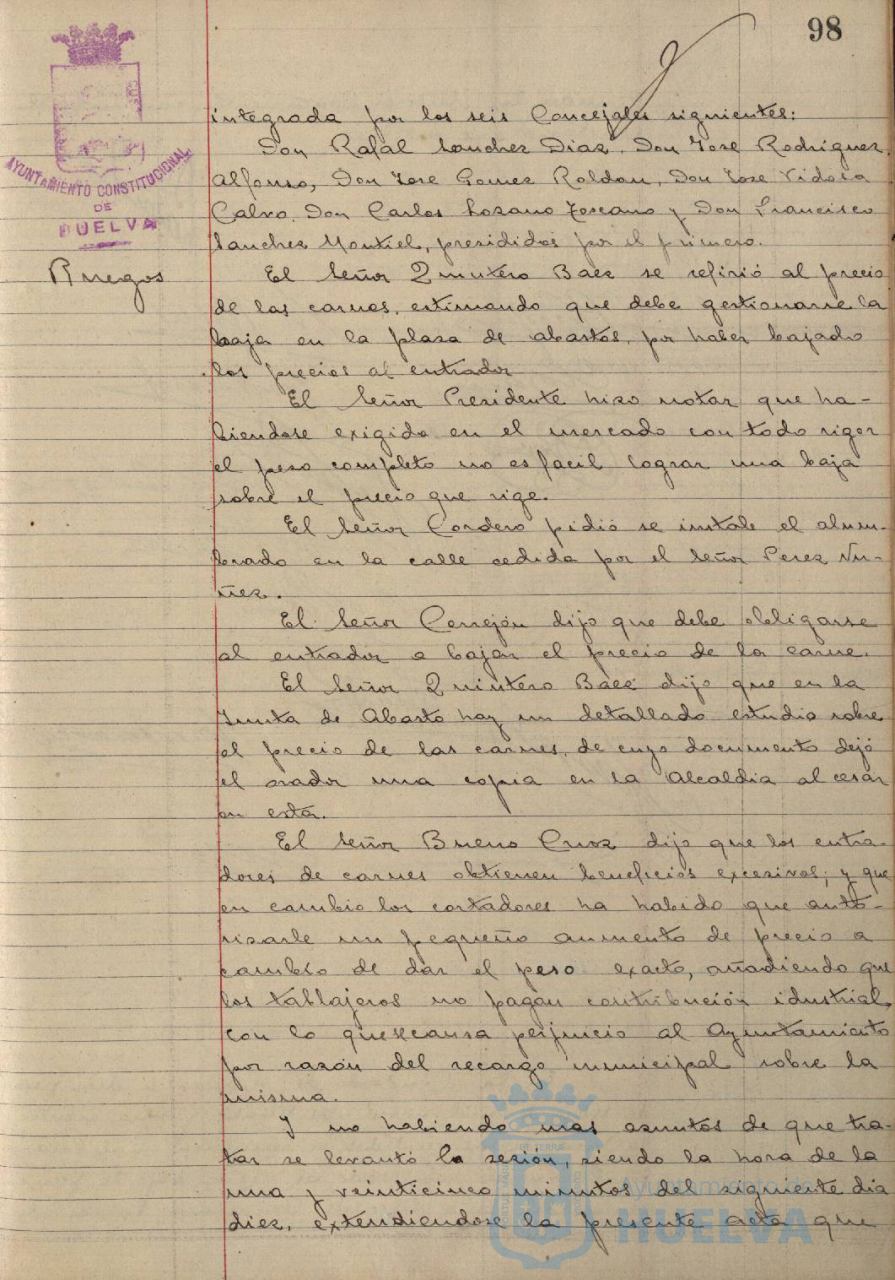 98
AYUNTAMIENTO CONSTITUCIONAL
DE
HUELVA
Ruegos
integrada por los seis Concejales siguientes:
Don Rafal Sanchez Diaz, Don Jose Rodriguez
Alfonso, Don Jose Gomez Roldan, Don Jose Vidosa
Calvo, Don Carlos Lozano Toscano y Don Francisco
Sanchez Montiel, presididos por el primero.
El Señor Quintero Baez se refirió al precio
de las carnes, estimando que debe gestionarse la
baja en la plaza de abastos, por haber bajado
los precios al entrador
El Señor Presidente hizo notar que ha-
biendose exigido en el mercado con todo rigor
el peso completo no es facil lograr una baja
sobre el precio que rige.
El Señor Cordero pidió se instale el alum-
brado en la calle cedida por el Señor Perez Nu-
ñez.
El Señor Cerrejón dijo que debe obligarse
al entrador a bajar el precio de la carne.
El Señor Quintero Báez dijo que en la
Junta de Abasto hay un detallado estudio sobre
el precio de las carnes, de cuyo documento dejó
el orador una copia en la Alcaldia al cesar
en esta.
El Señor Bueno Cruz dijo que los entra-
dores de carnes obtienen beneficios excesivos; y que
en cambio los cortadores ha habido que auto-
rizarle un pequeño aumento de precio a
cambio de dar el peso exacto, añadiendo que
los tablajeros no pagan contribución idustrial,
con lo que se causa perjuicio al Ayuntamiento
por razón del recargo municipal sobre la
misma.
Y no habiendo mas asuntos de que tra-
tar se levantó la sesión, siendo la hora de la
una y veinticinco minutos del siguiente dia
diez, extendiendose la presente acta que
Ayuntamiento de
HUELVA